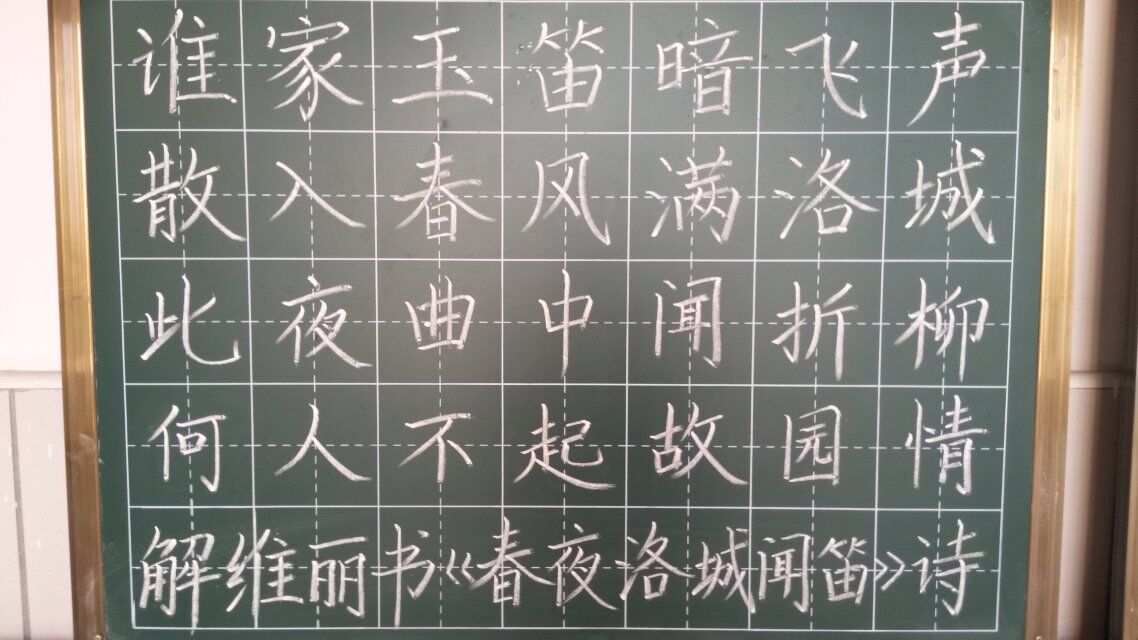 谁家玉笛暗飞声
散入春风满洛城
此夜曲中闻折柳
何人不起故园情
解维丽书《春夜洛城闻笛》诗